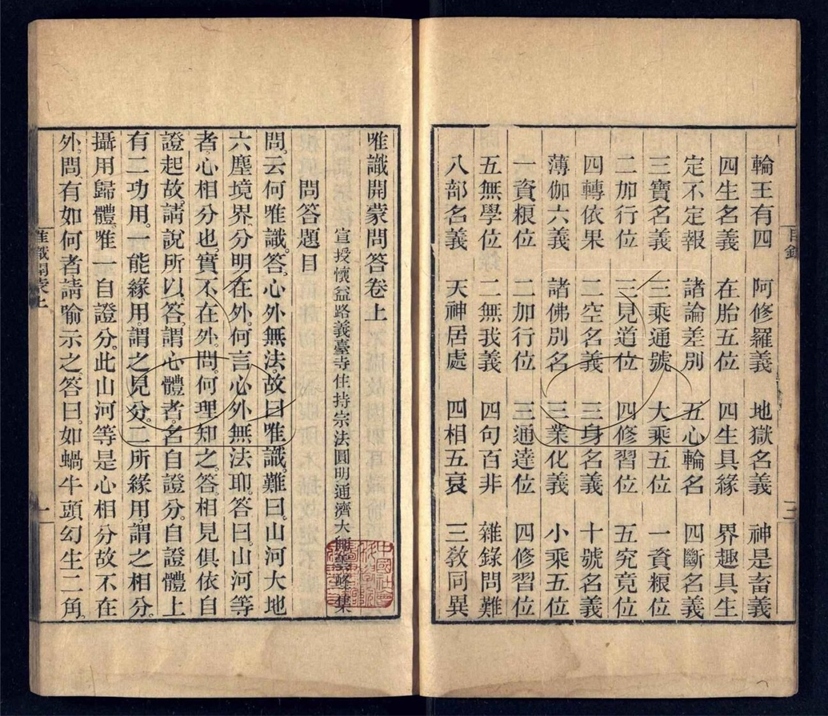 目錄
三
輪王有四 阿修羅義 地獄名義 神是畜義
四生名義 在胎五位 四生具緣 界趣具生
定不定報 諸論差別 五心輪名 四斷名義
三寶名義 三乘通號 大乘五位 一資粮位
二加行位 三見道位 四修習位 五究竟位
四轉依果 二空名義 三身名義 十號名義
薄伽六義 諸佛別名 三業化義 小乘五位
一資粮位 二加行位 三通達位 四修習位
五無學位 二無我義 四句百非 雜錄問難
八部名義 天神居處 四相五衰 三敎同異
唯識開蒙問答卷上
宣授懷益路義臺寺住持宗法圓明通濟大 集
問答題目
問。云何唯識。答。心外無法。故曰唯識。難曰。山河大地
六塵境界分明在外。何言心外無法耶。答曰。山河等
者心相分也。實不在外。問。何理知之。答。相見俱依自
證起故。請說所以。答。謂心體者。名自證分。自證體上
有二功用。一能緣用。謂之見分。二所緣用。謂之相分。
攝用歸體。唯一自證分。此山河等是心相分故不在
外。問。有如何者。請喻示之。答曰。如蝸牛頭幻生二角。
唯識開蒙上
一